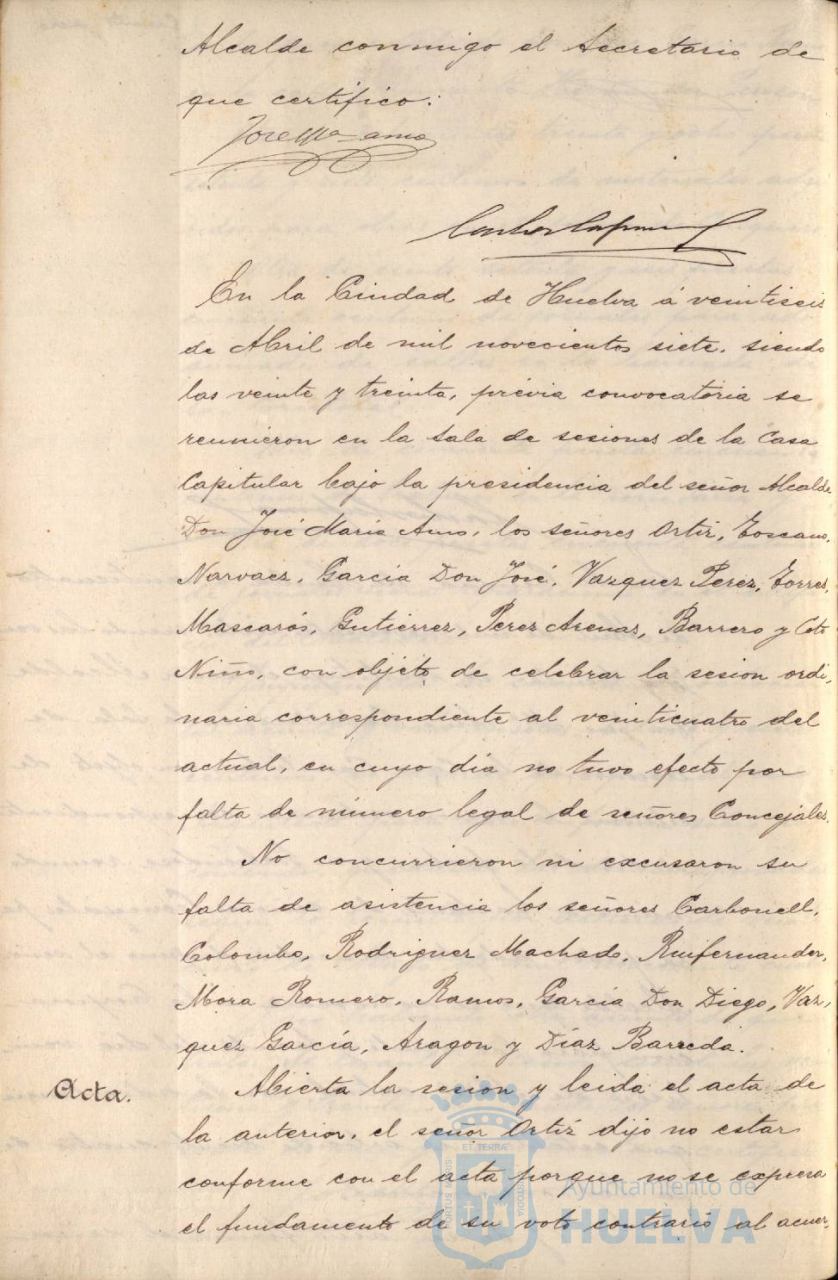 Alcalde conmigo el Secretario de
que certifico:
José Mª Amo
En la Ciudad de Huelva á veintiseis
de Abril de mil novecientos siete, siendo
las veinte y treinta, prévia convocatoria se
reunieron en la sala de sesiones de la Casa
Capitular bajo la presidencia del señor Alcalde,
Don José Maria Amo, los señores Ortiz, Toscano,
Narvaez, García Don José, Vazquez Perez, Torres,
Mascarós, Gutierrez, Perez Arenas, Barrero y Coto
Niño, con objeto de celebrar la sesion ordi,
naria correspondiente al veinticuatro del
actual, en cuyo dia no tuvo efecto por
falta de número legal de señores Concejales.
No concurrieron ni excusaron su
falta de asistencia los señores Carbonell,
Colombo, Rodriguez Machado, Ruifernandez,
Mora Romero, Ramos, García Don Diego, Vaz,
quez García, Aragon y Díaz Barreda.
Acta. Abierta la sesion y leida el acta de
la anterior, el señor Ortiz dijo no estar
conforme con el acta porque no se expresa
el fundamento de su voto contrario al acuer,
ET TERRÆ
CUSTODIA
Ayuntamiento de
HUELVA